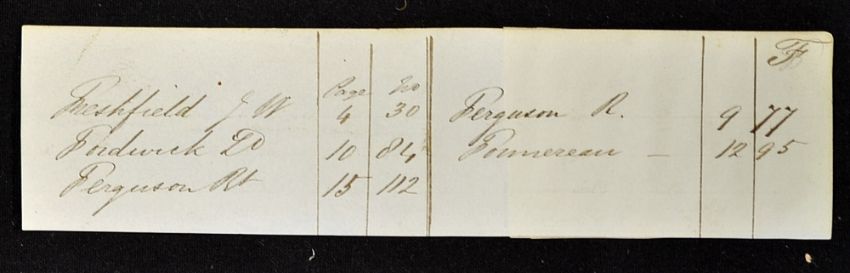 F
Page No
Freshfield J W 4 30
Fordwick Ld 10 84
Ferguson Rt 15 112
Ferguson R. 9 77
Fonnereau — 12 95